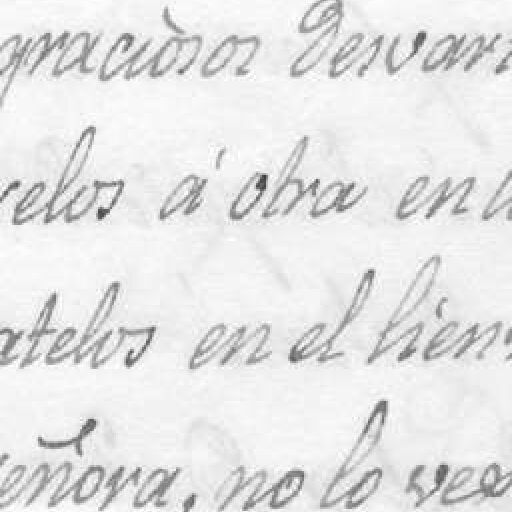 graciòsos Desvar
velos á otra en
atelos en el lien
eñora, no lo ve